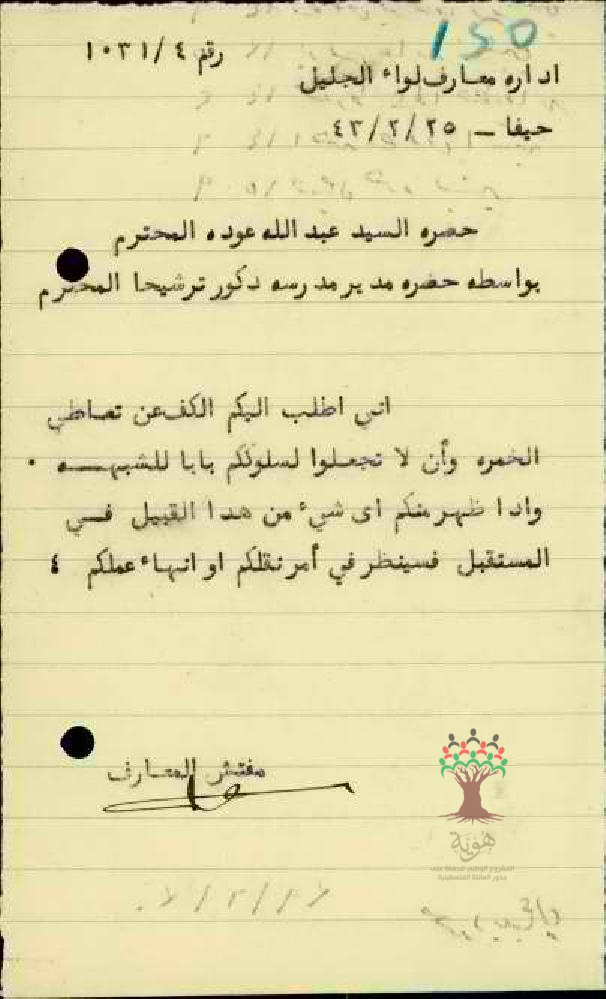 150
رقم ١٠٣١/٤
اداره معارف لواء الجليل
حيفا _ ٤٣/٢/٢٥
حضره السيد عبد الله عوده المحترم
بواسطه حضره مدير مدرسه ذكور ترشيحا المحترم
اني اطلب اليكم الكف عن تعاطي
الخمره وأن لا تجعلوا لسلوككم بابا للشبهـــه .
واذا ظهر منكم اى شيء من هذا القبيل فــي
المستقبل فسينظر في أمر نقلكم او انهاء عملكم ٤
مفتش المعارف
هُويّة
المشروع الوطني للحفاظ على
جذور العائلة الفلسطينية